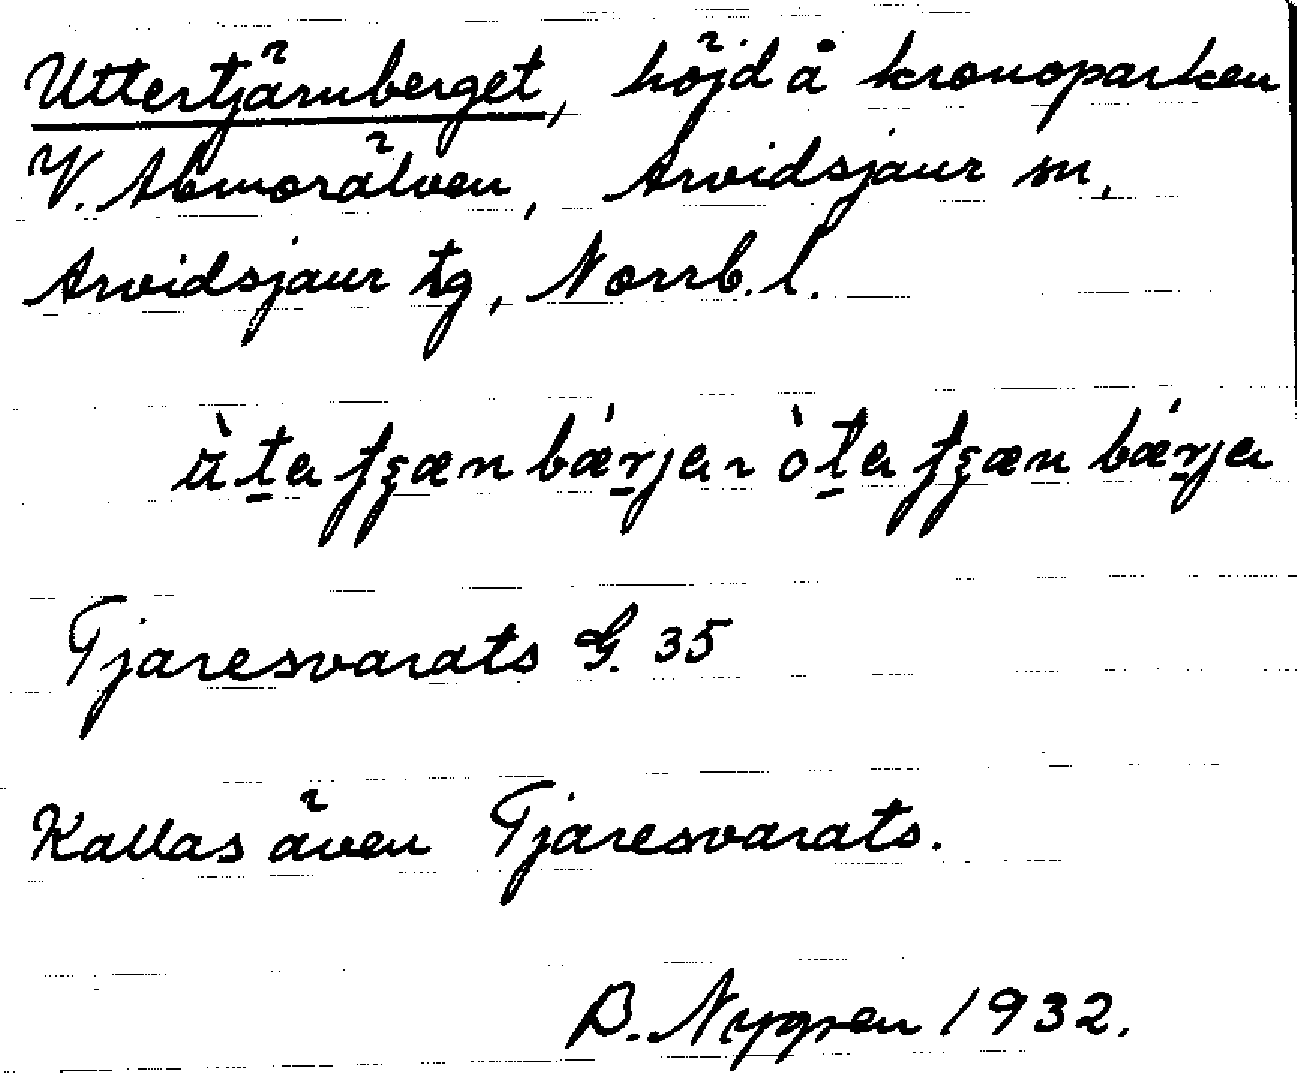 Uttertjärnberget, höjd å kronoparken
V. Abmorälven, Arvidsjaur sn,
Arvidsjaur tg, Norrb. l.
ùta tʂæn bǽrjɐ ~ òta tʂæn bǽrjɐ
Tjaresvarats G. 35
Kallas även Tjaresvarats.
B. Nygren 1932.